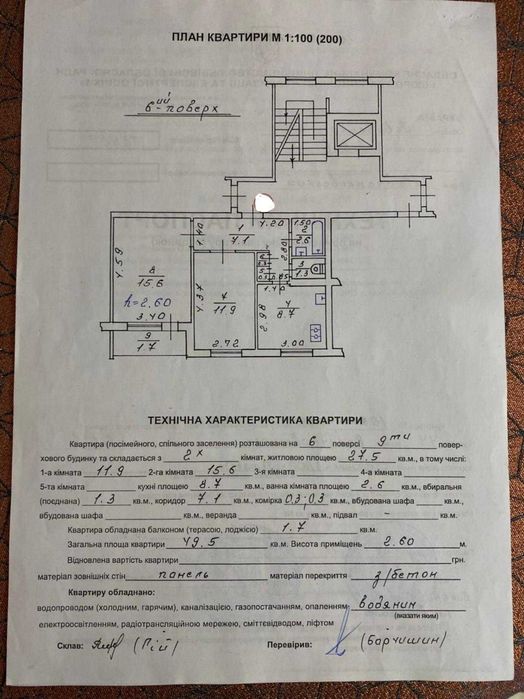 ПЛАН КВАРТИРИ М 1:100 (200)
6-ий поверх
1.40
1
7.1
1.20
1.50
2
2.6
2.80
3
1.3
4.59
8
15.6
h=2.60
3.40
9
1.7
4.37
7
11.9
2.72
1.40
2.98
4
8.7
3.00
ТЕХНІЧНА ХАРАКТЕРИСТИКА КВАРТИРИ
Квартира (посімейного, спільного заселення) розташована на 6 поверсі 9ти повер-
хового будинку та складається з 2х кімнат, житловою площею 27,5 кв.м., в тому числі:
1-а кімната 11.9 2-га кімната 15.6 3-я кімната 4-а кімната
5-та кімната кухні площею 8.7 кв.м., ванна кімната площею 2.6 кв.м., вбиральня
(поєднана) 1.3 кв.м., коридор 7.1 кв.м., комірка 0,3;0,3 кв.м., вбудована шафа кв.м.,
вбудована шафа кв.м., веранда кв.м., підвал - кв.м.
Квартира обладнана балконом (терасою, лоджією) 1.7 кв.м.
Загальна площа квартири 49,5 кв.м. Висота приміщень 2.60 м.
Відновлена вартість квартири грн.
матеріал зовнішніх стін панель матеріал перекриття з/бетон
Квартиру обладнано:
водопроводом (холодним, гарячим), каналізацією, газопостачанням, опаленням- водяним
(вказати яким)
електроосвітленням, радіотрансляційною мережею, сміттєвідводом, ліфтом
Склав: (Пій) Перевірив: (Барчишин)